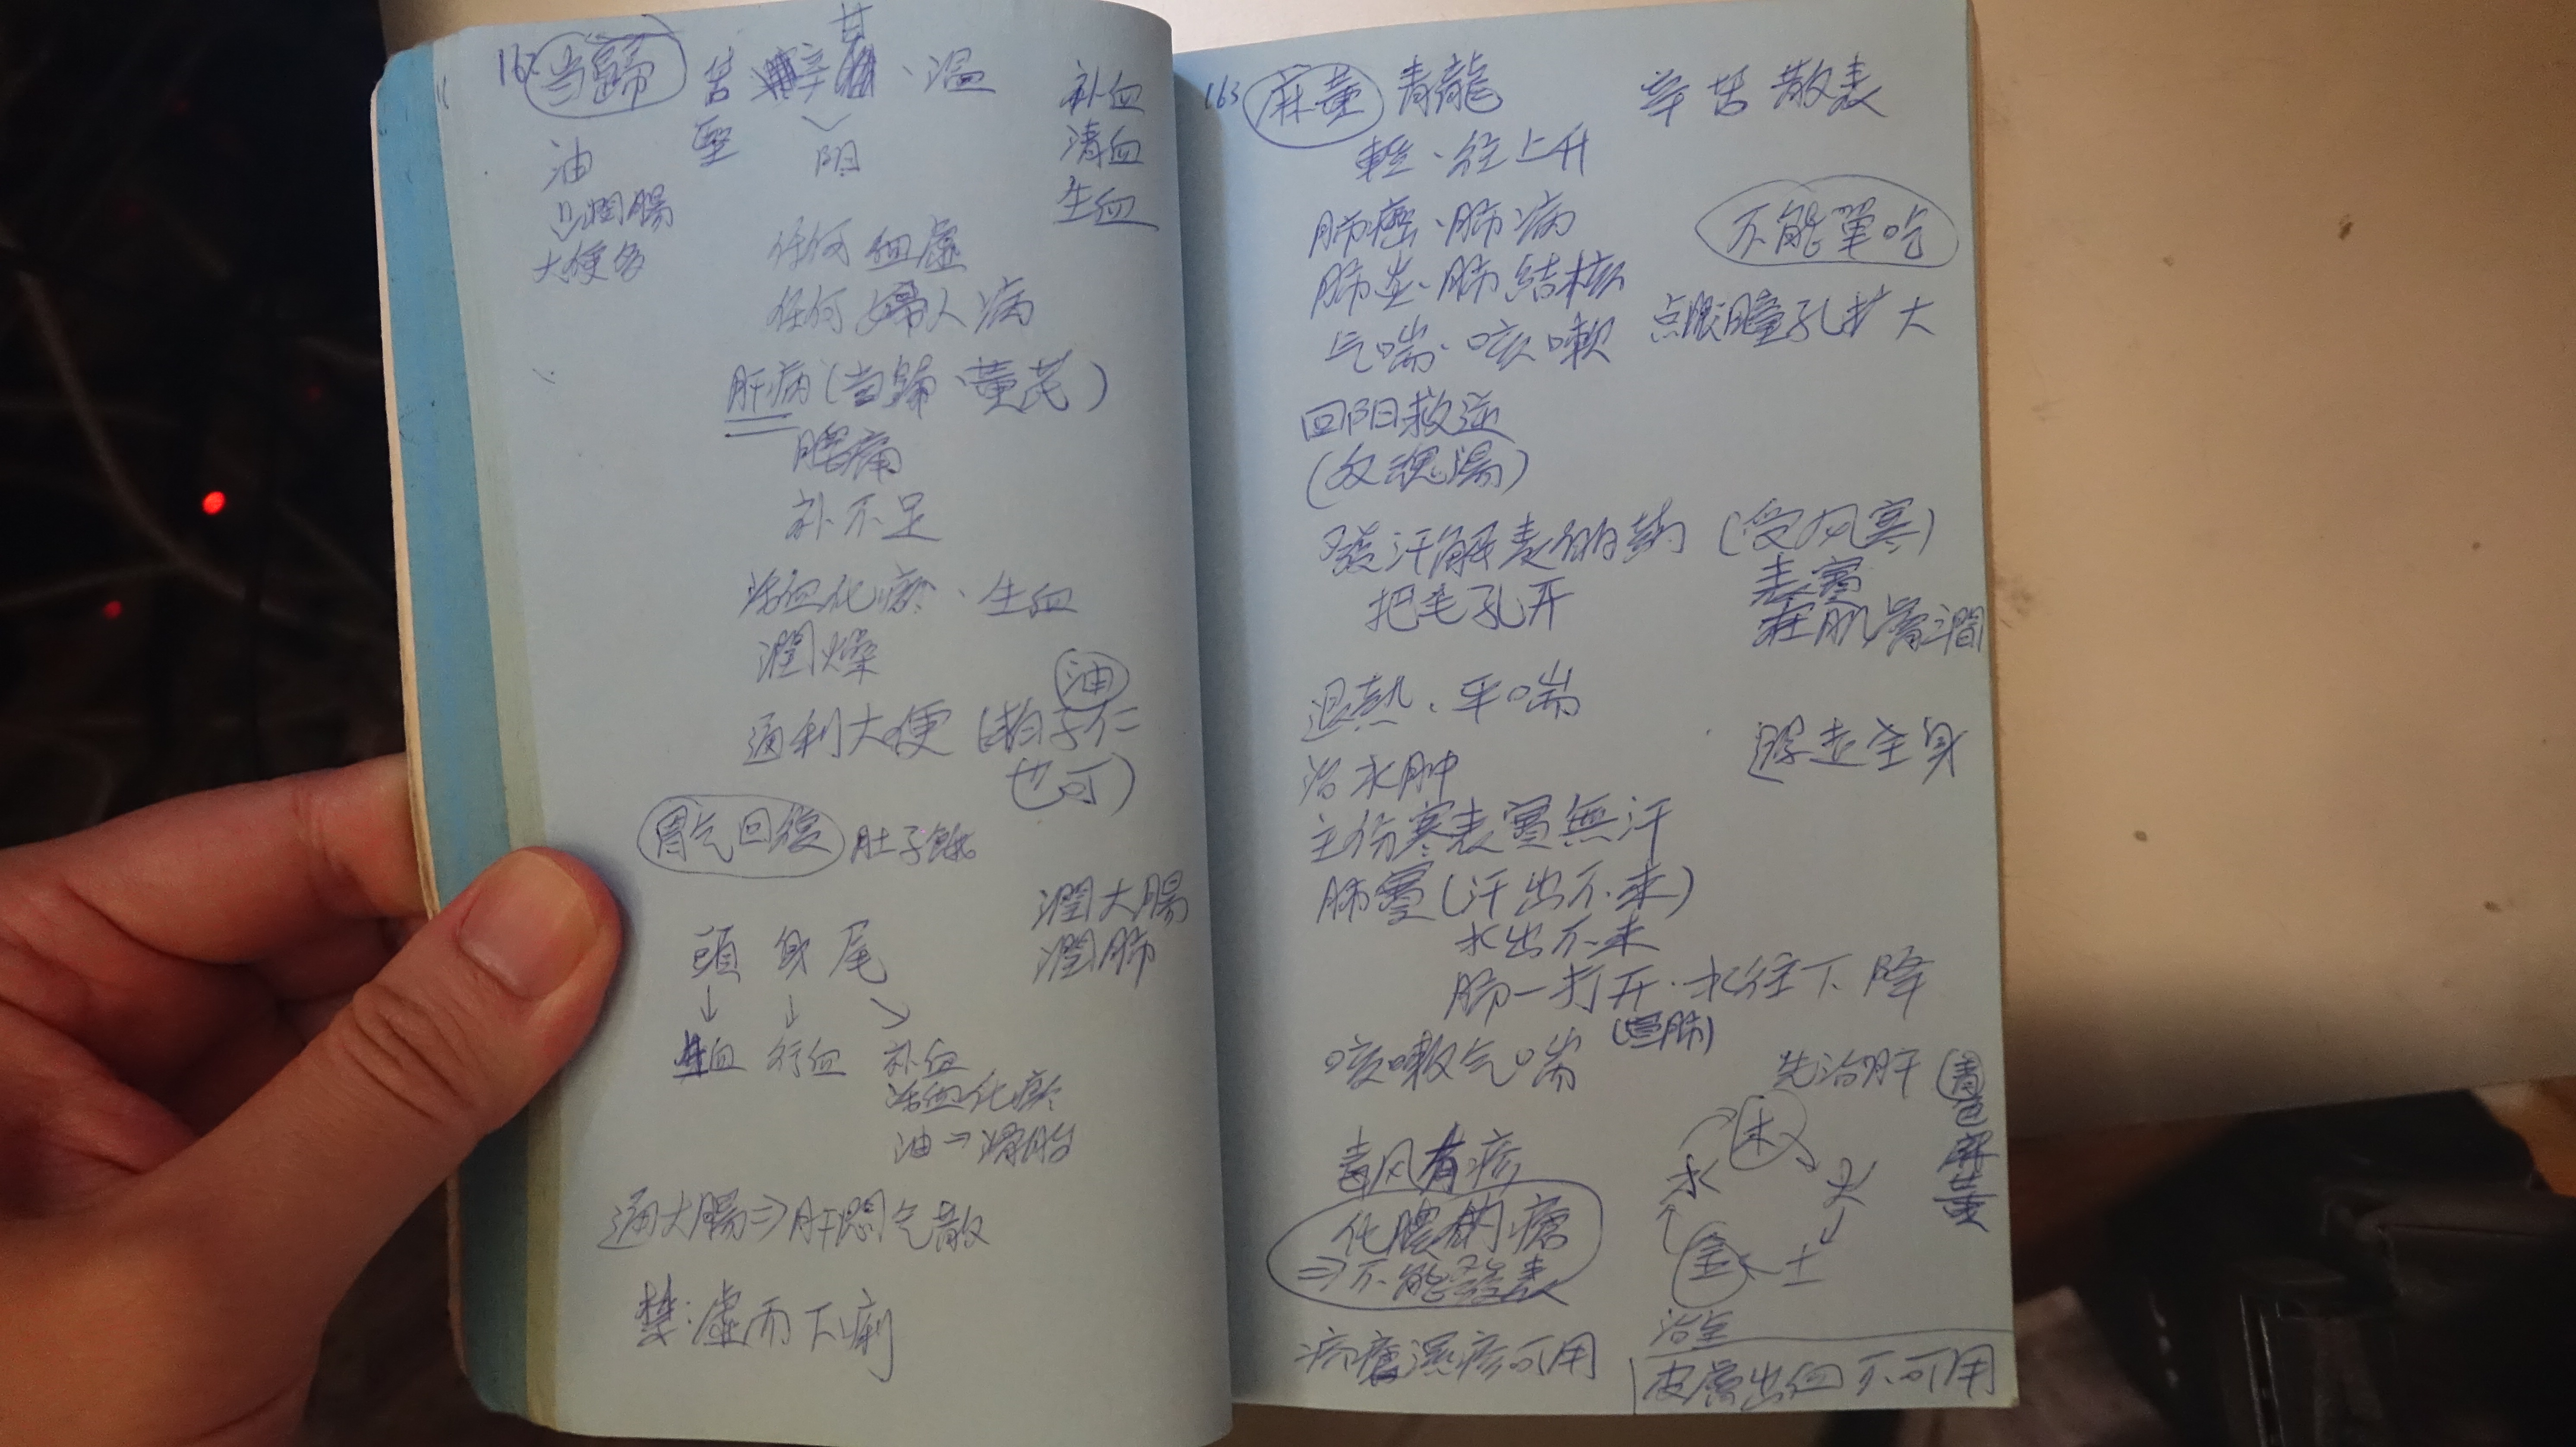 162 当歸 苦 辛 甘、温
堅 阴
补血
清血
生血
油
⇓潤腸
大便多
任何血虛
任何婦人病
肝病(当歸、黄芪)
腰痛
补不足
活血化瘀、生血
潤燥
油
通利大便(柏子仁
也可)
胃气回復 肚子餓
潤大腸
潤肺
頭 身 尾
↓ ↓ ↘
生血 行血 补血
活血化瘀
油⇒滑胎
通大腸⇒肝悶气散
禁:虛而下痢
163 麻黄 青龍 辛苦散表
輕、往上升
肺癌、肺病
不能單吃
肺炎、肺結核
气喘、咳嗽
点眼瞳孔扩大
回阳救逆
(还魂湯)
發汗解表的药 (受风寒)
把毛孔开
表實
在肌膚之間
退熱、平喘
游走全身
治水肿
主伤寒表實無汗
肺實(汗出不來)
水出不来
肺一打开、水往下降
咳嗽气喘
先治肝 青色麻黄
木
水 火
金 土
治金
毒风有疹
化膿的瘡
⇒不能發表
湿疹可用
皮膚出血不可用